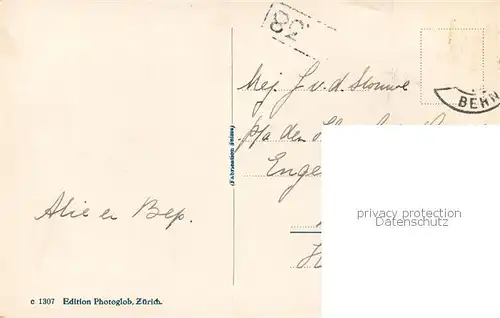 82
BERN
Mej. J. v. d. Stouwe
p/a den
Enge
(Fabrication Suisse)
Alie en Bep.
privacy protection
Datenschutz
c 1307 Edition Photoglob, Zürich.